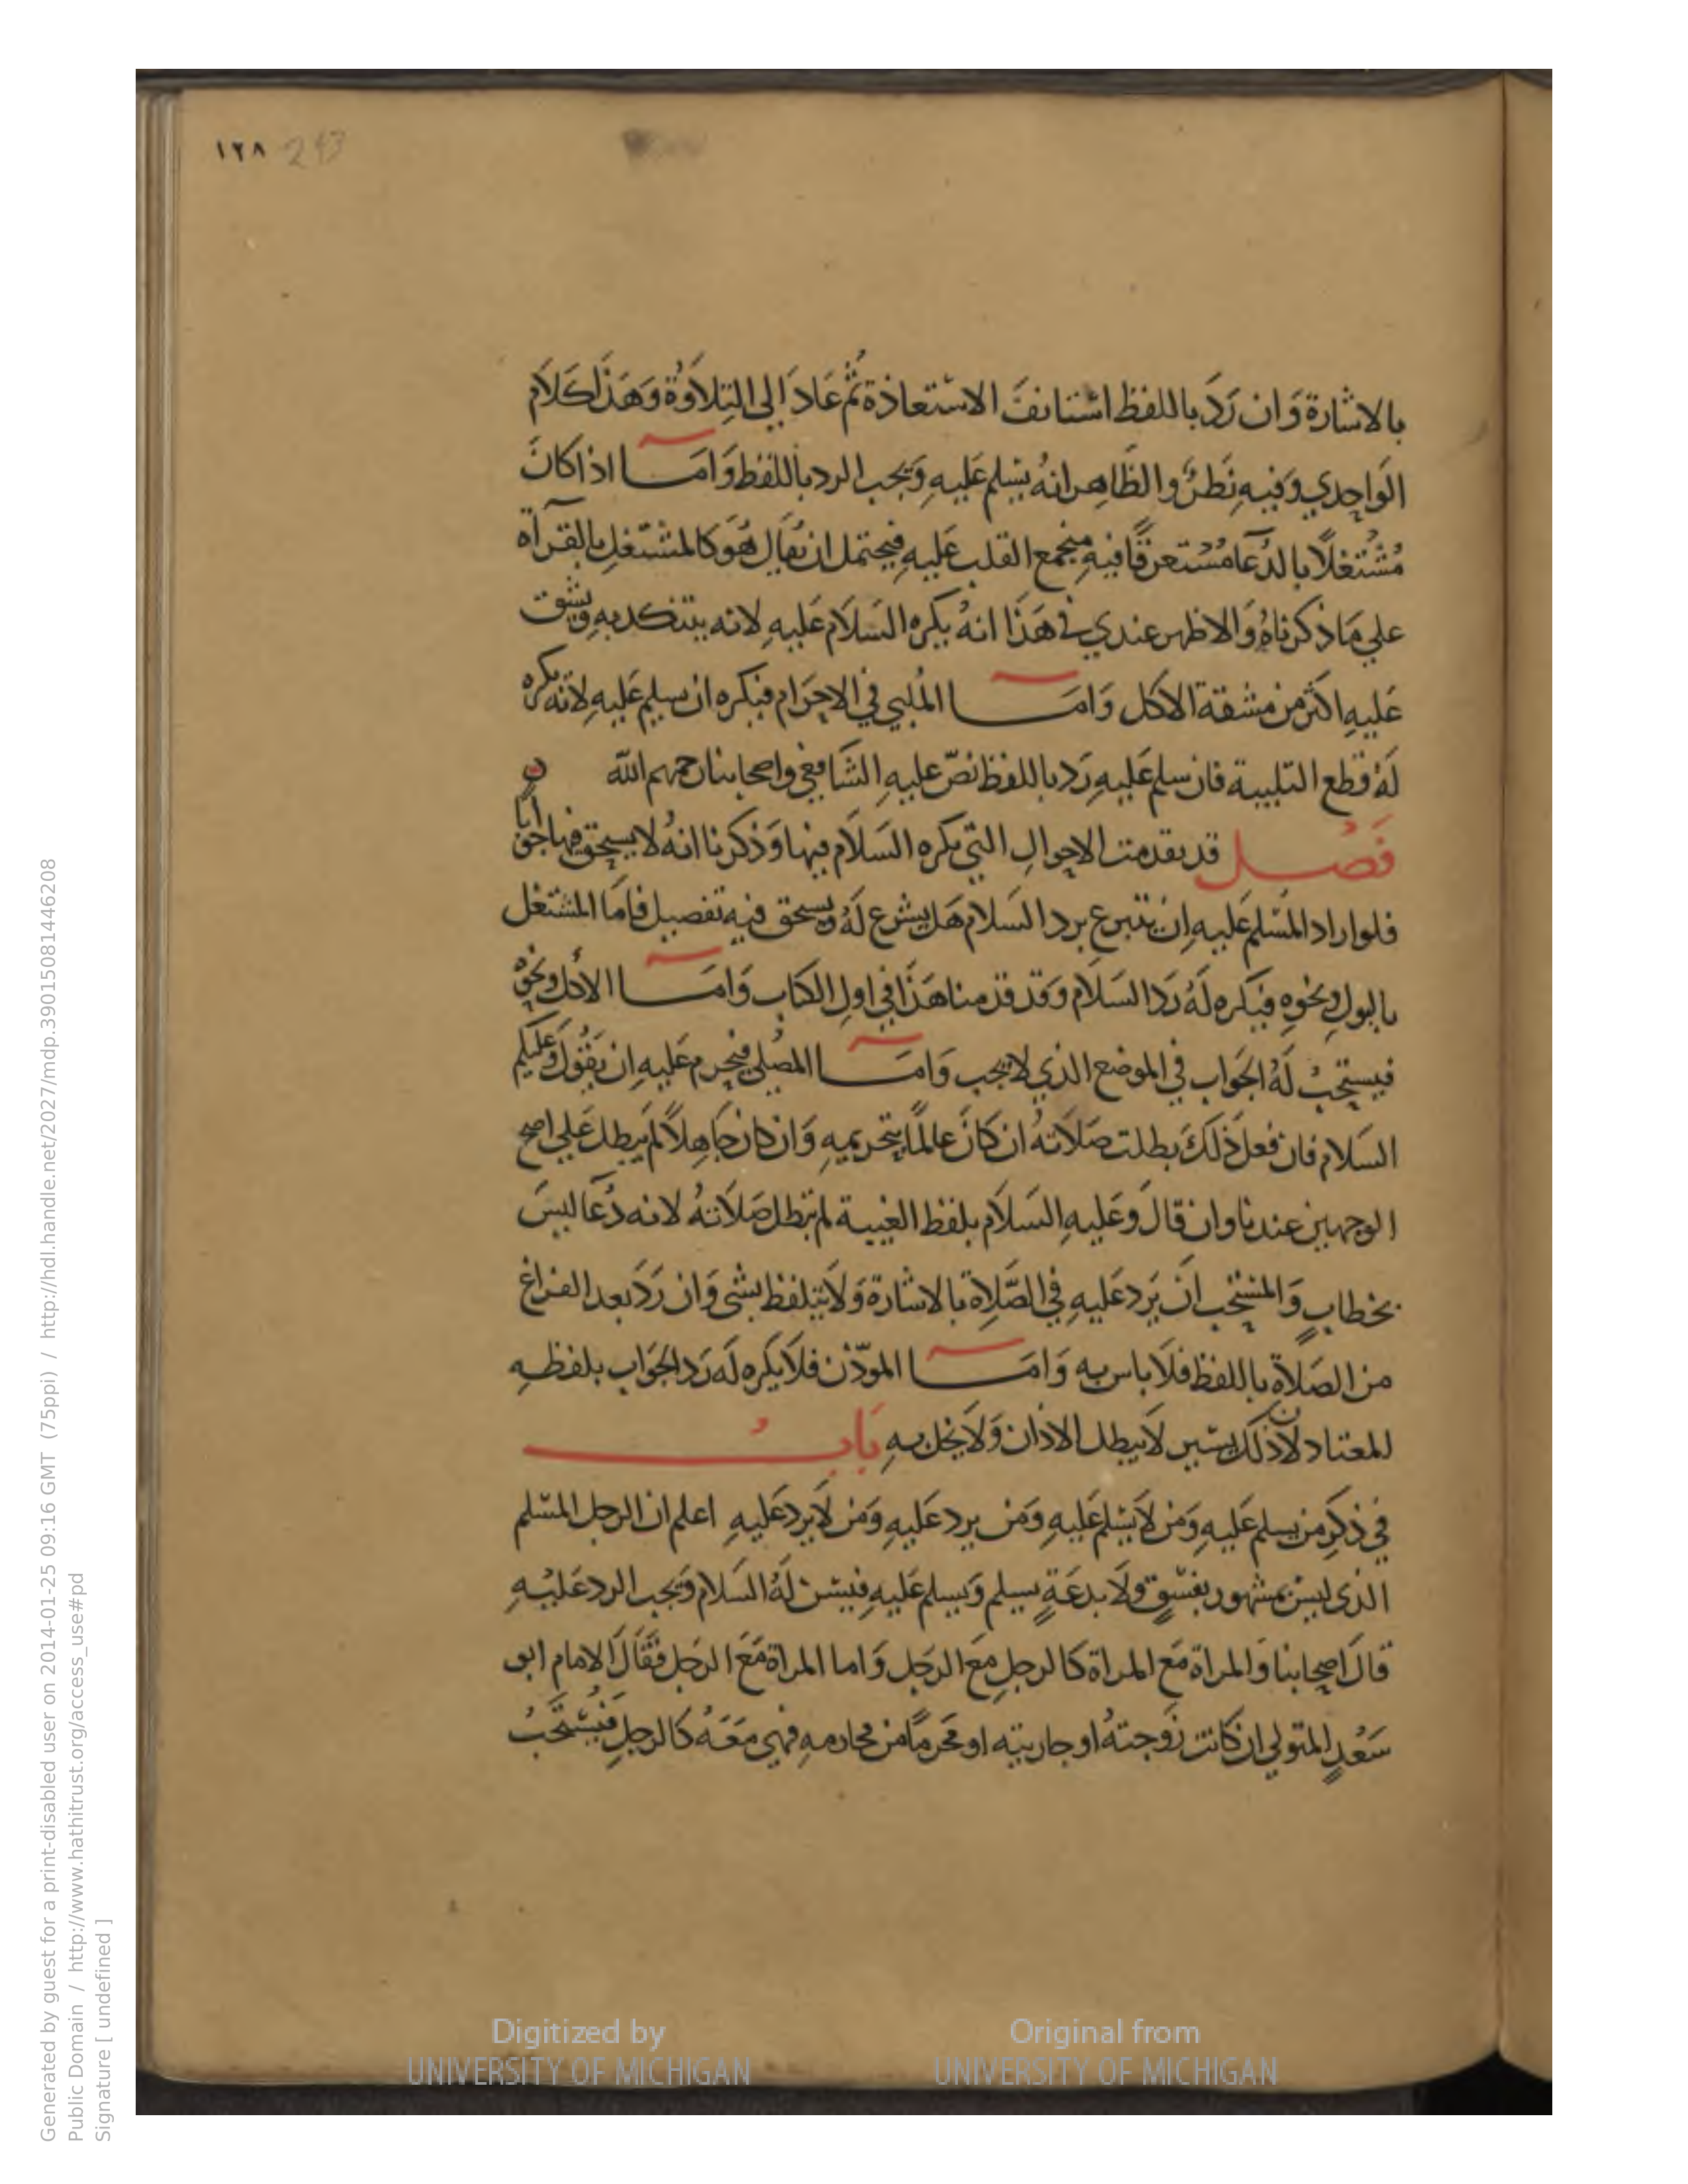 ١٢٨ 243
بالاشارة وَان رَدَّ باللفظ استانفَ الاستعاذة ثُمَّ عَادَ الى التِلاَوَةُ وَهَذَا كَلاَم
الوَاحِدي وَفيهِ نَظَرٌ والظَاهِر انهُ يسَلم عَليهِ وَيجب الرد باللفظ وَامَّا اذا كانَ
مُشْتغلاً بالدُعَا مُسْتعرقًا فيهِ مجمع القلب عَليهِ فيحتمل ان يُقال هُوَ كالمشتغل بالقرآه
علي مَا ذكرناهُ وَالاظهر عندي في هَذَا انهُ يكره السَلاَم عَليهِ لانه يتنكد بهِ ويشق
عَليهِ اكثر من مشقة الاكل وَامَّا المُلبي في الاحرَام فيكره ان يسلم عَليهِ لانَّه يكره
لهُ قطع التلبية فان سلم عَليهِ رَد باللفظ نصّ عليهِ الشَافعي واصحابنا رحمهم الله
فَصْل قد تقدمت الاحوالِ التي يكره السَلاَم فيها وَذكرنا انهُ لا يسحق فيها جوَابا
فلو اراد المسَلم عَليهِ ان يتبرع برد السَلام هَل يشرع لهُ ويسحق فيه تفصيل فامَا المشتغل
بالبول ونحوِه فيكره لَهُ رَد السَلاَم وَقد قدمنا هَذَا في اول الكتاب وَامَّا الأكل ونحوه
فيستحبُ لَهُ الجَوَاب في الموضع الذي لا يجب وَامَّا المصَلي فيحرم عَليهِ ان يَقُول وَعَليكم
السَلام فان فعل ذلكَ بطلت صَلاَتهُ ان كانَ عالمًا بتحريمهِ وَان كان جَاهِلاً لم يبطل عَلى اصح
الوجهين عندنا وان قالَ وَعَليهِ السَلاَم بلفظ الغيبة لم تبطل صَلاَتهُ لانه دُعَا ليسَ
بخطابٍ وَالمستحب انَ يَرد عَليهِ في الصَّلاَة بالاشارة وَلاَ يتلفظ بشي وَان رَدَ بعد الفراغ
من الصَلاَة باللفظ فلاَ باس به وَامَّا المودّن فلاَ يكره لَه رَد الجَوَاب بلفظهِ
المعتاد لان ذلك يسير لاَ يبطل الاذان وَلاَ يخل بهِ بَابُ
في ذكِر من يسلم عَليهِ وَمَن لاَ يسَلم عَليهِ وَمَن يرد عَليهِ وَمَن لاَ يرد عَليهِ اعلم ان الرجل المسلم
الذي ليسَ بمشهور بفسْقٍ ولاَ بدعَةٍ يسلم وَيسلم عَليهِ فيسَن لَهُ السَلام وَيجب الرد عَليْهِ
قالَ اصحابنا وَالمراة مَع المراة كالرجل مَع الرجَل وَاما المراة مَعَ الرجَل فقَالَ الامام ابو
سَعْدٍ المتولي ان كانت زَوجتهُ او جاريته او محَرمًا من محَارمهِ فهي مَعَهُ كالرجلِ فيُستحَبُ